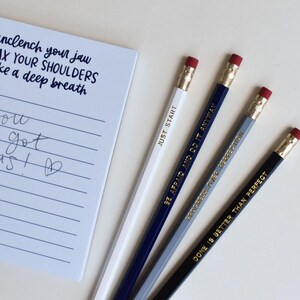 unclench your jaw
AX YOUR SHOULDERS
ke a deep breath
you
got
this! ♡
JUST START
BE AFRAID AND DO IT ANYWAY
PROGRESS OVER PERFECTION
DONE IS BETTER THAN PERFECT